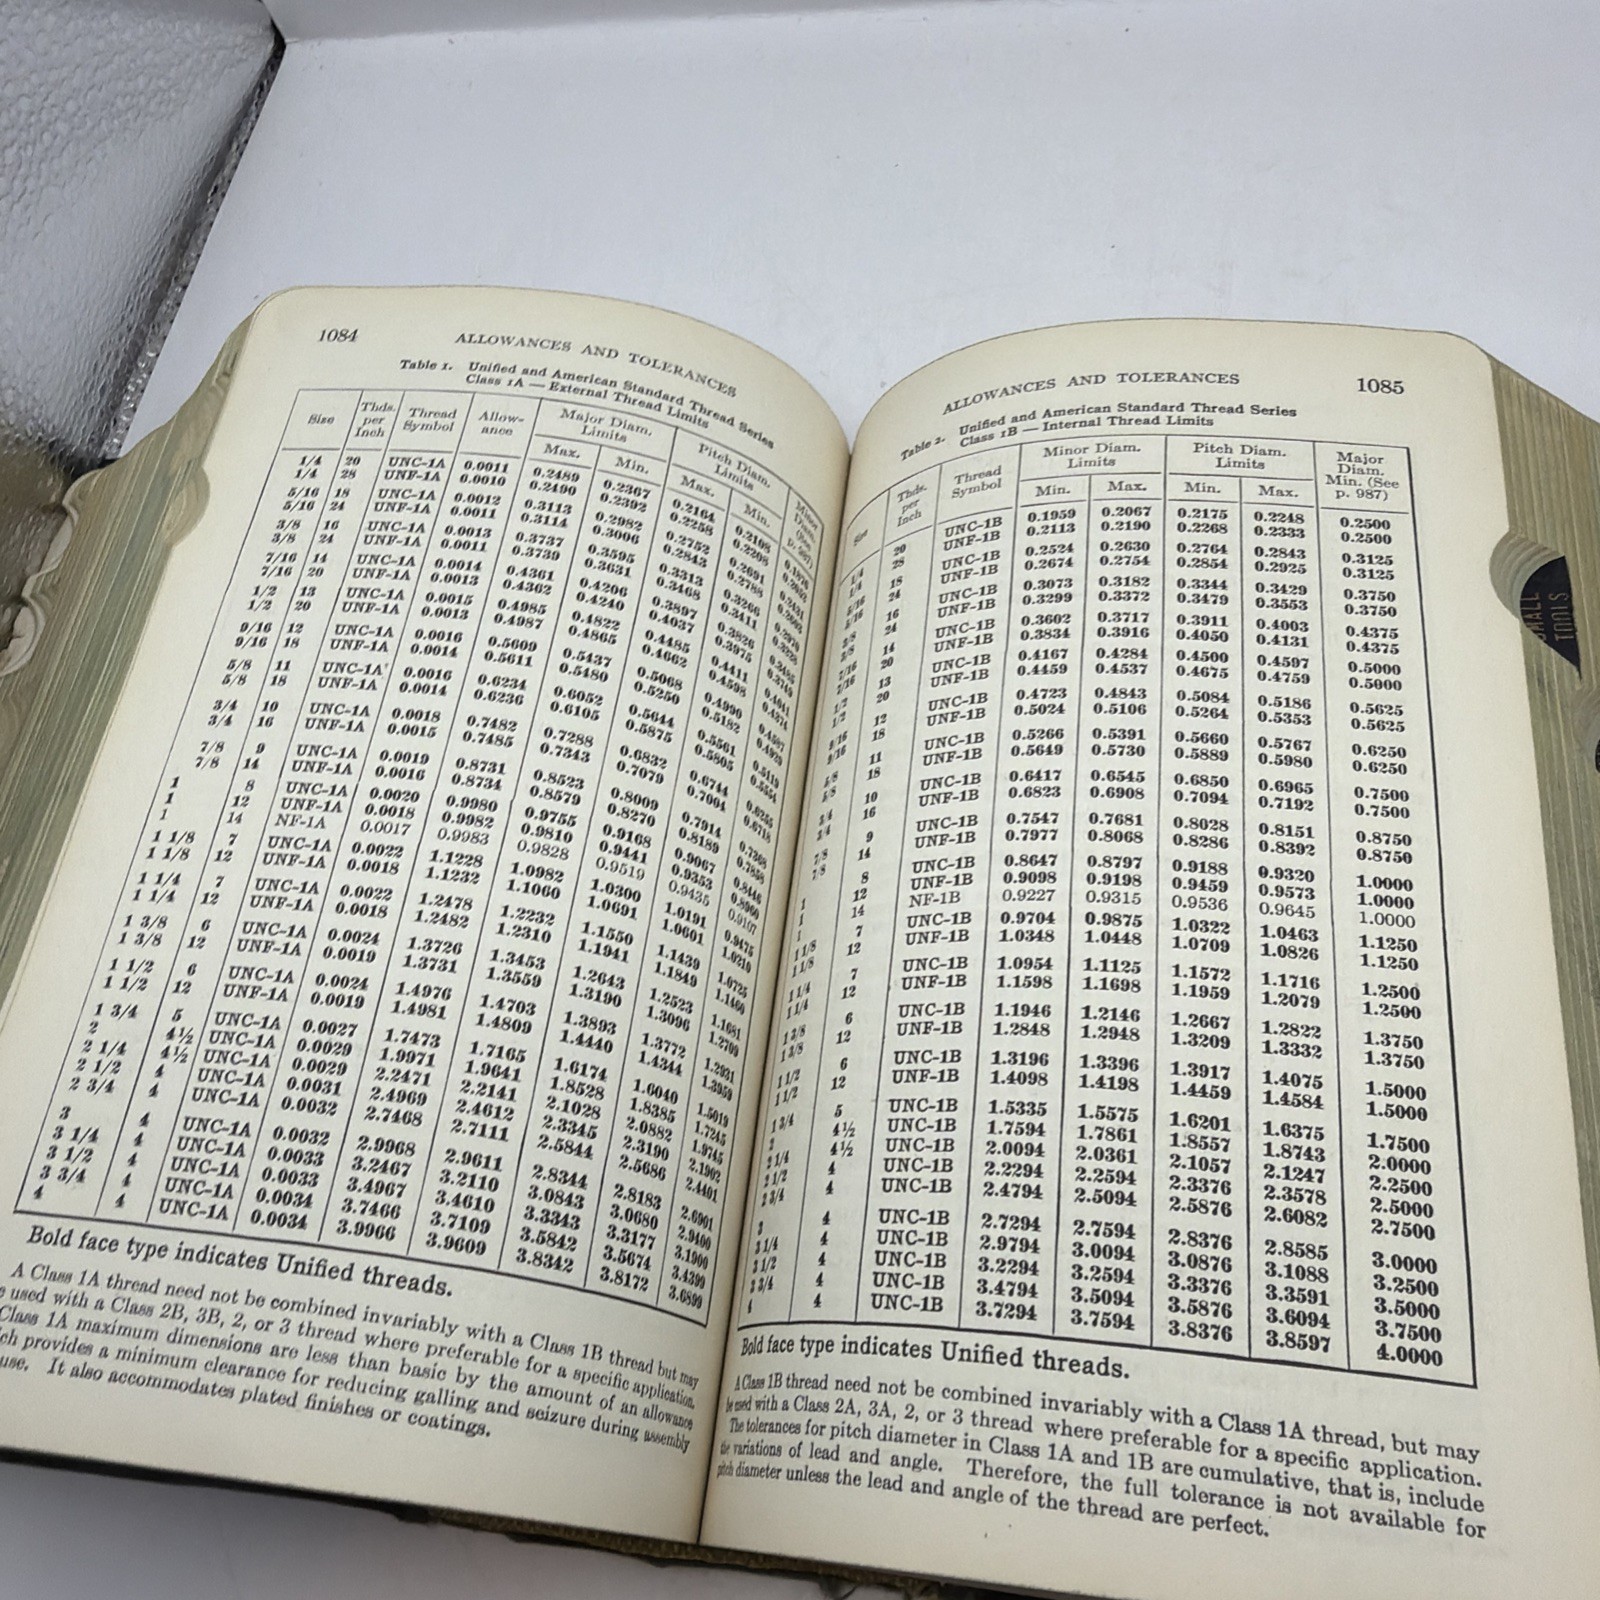 1084 ALLOWANCES AND TOLERANCES
Table 1. Unified and American Standard Thread Series
Class 1A — External Thread Limits
Size Thds. per Inch Thread Symbol Allow-ance Major Diam. Limits Pitch Diam. Limits Minor Diam. (See p. 987)
Max. Min. Max. Min.
1/4 20 UNC-1A 0.0011 0.2489 0.2367 0.2164 0.2108
1/4 28 UNF-1A 0.0010 0.2490 0.2392 0.2258 0.2208
5/16 18 UNC-1A 0.0012 0.3113 0.2982 0.2752 0.2691
5/16 24 UNF-1A 0.0011 0.3114 0.3006 0.2843 0.2788
3/8 16 UNC-1A 0.0013 0.3737 0.3595 0.3313 0.3266
3/8 24 UNF-1A 0.0011 0.3739 0.3631 0.3468 0.3411
7/16 14 UNC-1A 0.0014 0.4361 0.4206 0.3897 0.3826
7/16 20 UNF-1A 0.0013 0.4362 0.4240 0.4037 0.3975
1/2 13 UNC-1A 0.0015 0.4985 0.4822 0.4485 0.4411 0.4041
1/2 20 UNF-1A 0.0013 0.4987 0.4865 0.4662 0.4598 0.4374
9/16 12 UNC-1A 0.0016 0.5609 0.5437 0.5068 0.4990 0.4587
9/16 18 UNF-1A 0.0014 0.5611 0.5480 0.5250 0.5182 0.4929
5/8 11 UNC-1A 0.0016 0.6234 0.6052 0.5644 0.5561 0.5119
5/8 18 UNF-1A 0.0014 0.6236 0.6105 0.5875 0.5805 0.5554
3/4 10 UNC-1A 0.0018 0.7482 0.7288 0.6832 0.6744 0.6255
3/4 16 UNF-1A 0.0015 0.7485 0.7343 0.7079 0.7004 0.6718
7/8 9 UNC-1A 0.0019 0.8731 0.8523 0.8009 0.7914 0.7368
7/8 14 UNF-1A 0.0016 0.8734 0.8579 0.8270 0.8189 0.7858
1 8 UNC-1A 0.0020 0.9980 0.9755 0.9168 0.9067 0.8446
1 12 UNF-1A 0.0018 0.9982 0.9810 0.9441 0.9353 0.8960
1 14 NF-1A 0.0017 0.9983 0.9828 0.9519 0.9435 0.9107
1 1/8 7 UNC-1A 0.0022 1.1228 1.0982 1.0300 1.0191 0.9475
1 1/8 12 UNF-1A 0.0018 1.1232 1.1060 1.0691 1.0601 1.0210
1 1/4 7 UNC-1A 0.0022 1.2478 1.2232 1.1550 1.1439 1.0725
1 1/4 12 UNF-1A 0.0018 1.2482 1.2310 1.1941 1.1849 1.1460
1 3/8 6 UNC-1A 0.0024 1.3726 1.3453 1.2643 1.2523 1.1681
1 3/8 12 UNF-1A 0.0019 1.3731 1.3559 1.3190 1.3096 1.2709
1 1/2 6 UNC-1A 0.0024 1.4976 1.4703 1.3893 1.3772 1.2931
1 1/2 12 UNF-1A 0.0019 1.4981 1.4809 1.4440 1.4344 1.3959
1 3/4 5 UNC-1A 0.0027 1.7473 1.7165 1.6174 1.6040 1.5019
2 4½ UNC-1A 0.0029 1.9971 1.9641 1.8528 1.8385 1.7245
2 1/4 4½ UNC-1A 0.0029 2.2471 2.2141 2.1028 2.0882 1.9745
2 1/2 4 UNC-1A 0.0031 2.4969 2.4612 2.3345 2.3190 2.1902
2 3/4 4 UNC-1A 0.0032 2.7468 2.7111 2.5844 2.5686 2.4401
3 4 UNC-1A 0.0032 2.9968 2.9611 2.8344 2.8183 2.6901
3 1/4 4 UNC-1A 0.0033 3.2467 3.2110 3.0843 3.0680 2.9400
3 1/2 4 UNC-1A 0.0033 3.4967 3.4610 3.3343 3.3177 3.1900
3 3/4 4 UNC-1A 0.0034 3.7466 3.7109 3.5842 3.5674 3.4399
4 4 UNC-1A 0.0034 3.9966 3.9609 3.8342 3.8172 3.6899
Bold face type indicates Unified threads.
A Class 1A thread need not be combined invariably with a Class 1B thread but may
used with a Class 2B, 3B, 2, or 3 thread where preferable for a specific application.
Class 1A maximum dimensions are less than basic by the amount of an allowance
provides a minimum clearance for reducing galling and seizure during assembly
use. It also accommodates plated finishes or coatings.
ALLOWANCES AND TOLERANCES 1085
Table 2. Unified and American Standard Thread Series
Class 1B — Internal Thread Limits
Size Thds. per Inch Thread Symbol Minor Diam. Limits Pitch Diam. Limits Major Diam. Min. (See p. 987)
Min. Max. Min. Max.
1/4 20 UNC-1B 0.1959 0.2067 0.2175 0.2248 0.2500
1/4 28 UNF-1B 0.2113 0.2190 0.2268 0.2333 0.2500
5/16 18 UNC-1B 0.2524 0.2630 0.2764 0.2843 0.3125
5/16 24 UNF-1B 0.2674 0.2754 0.2854 0.2925 0.3125
3/8 16 UNC-1B 0.3073 0.3182 0.3344 0.3429 0.3750
3/8 24 UNF-1B 0.3299 0.3372 0.3479 0.3553 0.3750
7/16 14 UNC-1B 0.3602 0.3717 0.3911 0.4003 0.4375
7/16 20 UNF-1B 0.3834 0.3916 0.4050 0.4131 0.4375
1/2 13 UNC-1B 0.4167 0.4284 0.4500 0.4597 0.5000
1/2 20 UNF-1B 0.4459 0.4537 0.4675 0.4759 0.5000
9/16 12 UNC-1B 0.4723 0.4843 0.5084 0.5186 0.5625
9/16 18 UNF-1B 0.5024 0.5106 0.5264 0.5353 0.5625
5/8 11 UNC-1B 0.5266 0.5391 0.5660 0.5767 0.6250
5/8 18 UNF-1B 0.5649 0.5730 0.5889 0.5980 0.6250
3/4 10 UNC-1B 0.6417 0.6545 0.6850 0.6965 0.7500
3/4 16 UNF-1B 0.6823 0.6908 0.7094 0.7192 0.7500
7/8 9 UNC-1B 0.7547 0.7681 0.8028 0.8151 0.8750
7/8 14 UNF-1B 0.7977 0.8068 0.8286 0.8392 0.8750
1 8 UNC-1B 0.8647 0.8797 0.9188 0.9320 1.0000
1 12 UNF-1B 0.9098 0.9198 0.9459 0.9573 1.0000
1 14 NF-1B 0.9227 0.9315 0.9536 0.9645 1.0000
1 1/8 7 UNC-1B 0.9704 0.9875 1.0322 1.0463 1.1250
1 1/8 12 UNF-1B 1.0348 1.0448 1.0709 1.0826 1.1250
1 1/4 7 UNC-1B 1.0954 1.1125 1.1572 1.1716 1.2500
1 1/4 12 UNF-1B 1.1598 1.1698 1.1959 1.2079 1.2500
1 3/8 6 UNC-1B 1.1946 1.2146 1.2667 1.2822 1.3750
1 3/8 12 UNF-1B 1.2848 1.2948 1.3209 1.3332 1.3750
1 1/2 6 UNC-1B 1.3196 1.3396 1.3917 1.4075 1.5000
1 1/2 12 UNF-1B 1.4098 1.4198 1.4459 1.4584 1.5000
1 3/4 5 UNC-1B 1.5335 1.5575 1.6201 1.6375 1.7500
2 4½ UNC-1B 1.7594 1.7861 1.8557 1.8743 2.0000
2 1/4 4½ UNC-1B 2.0094 2.0361 2.1057 2.1247 2.2500
2 1/2 4 UNC-1B 2.2294 2.2594 2.3376 2.3578 2.5000
2 3/4 4 UNC-1B 2.4794 2.5094 2.5876 2.6082 2.7500
3 4 UNC-1B 2.7294 2.7594 2.8376 2.8585 3.0000
3 1/4 4 UNC-1B 2.9794 3.0094 3.0876 3.1088 3.2500
3 1/2 4 UNC-1B 3.2294 3.2594 3.3376 3.3591 3.5000
3 3/4 4 UNC-1B 3.4794 3.5094 3.5876 3.6094 3.7500
4 4 UNC-1B 3.7294 3.7594 3.8376 3.8597 4.0000
Bold face type indicates Unified threads.
A Class 1B thread need not be combined invariably with a Class 1A thread, but may
be used with a Class 2A, 3A, 2, or 3 thread where preferable for a specific application.
The tolerances for pitch diameter in Class 1A and 1B are cumulative, that is, include
the variations of lead and angle. Therefore, the full tolerance is not available for
pitch diameter unless the lead and angle of the thread are perfect.
SMALL
TOOLS